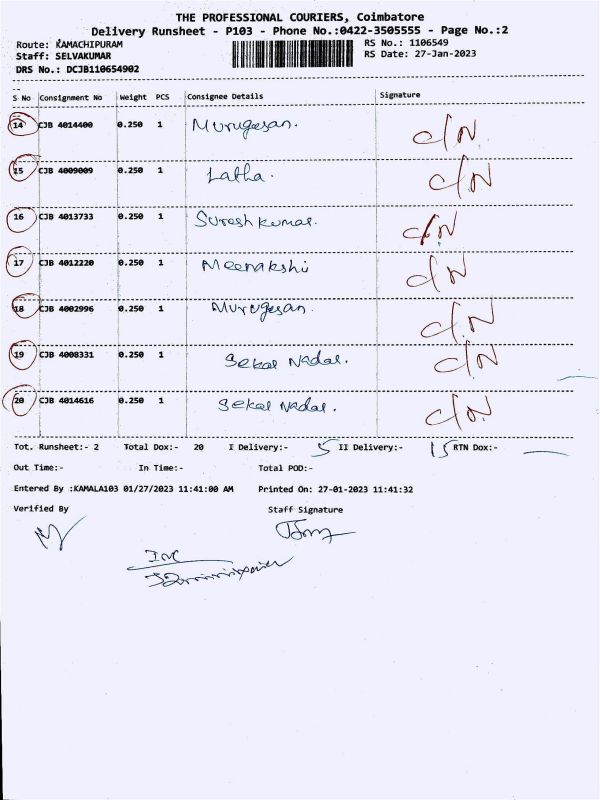 THE PROFESSIONAL COURIERS, Coimbatore
Delivery Runsheet - P103 - Phone No.:0422-3505555 - Page No.:2
Route: KAMACHIPURAM RS No.: 1106549
Staff: SELVAKUMAR RS Date: 27-Jan-2023
DRS No.: DCJB110654902
S No Consignment No Weight PCS Consignee Details Signature
14 CJB 4014400 0.250 1 Murugesan. C/N
15 CJB 4009009 0.250 1 Latha. C/N
16 CJB 4013733 0.250 1 Sureshkumar. C/N
17 CJB 4012220 0.250 1 Meenakshi C/N
18 CJB 4002996 0.250 1 Murugesan. C/N
19 CJB 4008331 0.250 1 Sekar Nadar. C/N
20 CJB 4014616 0.250 1 Sekar Nadar. C/N
Tot. Runsheet:- 2 Total Dox:- 20 I Delivery:- 5 II Delivery:- 15 RTN Dox:-
Out Time:- In Time:- Total POD:-
Entered By :KAMALA103 01/27/2023 11:41:00 AM Printed On: 27-01-2023 11:41:32
Verified By Staff Signature